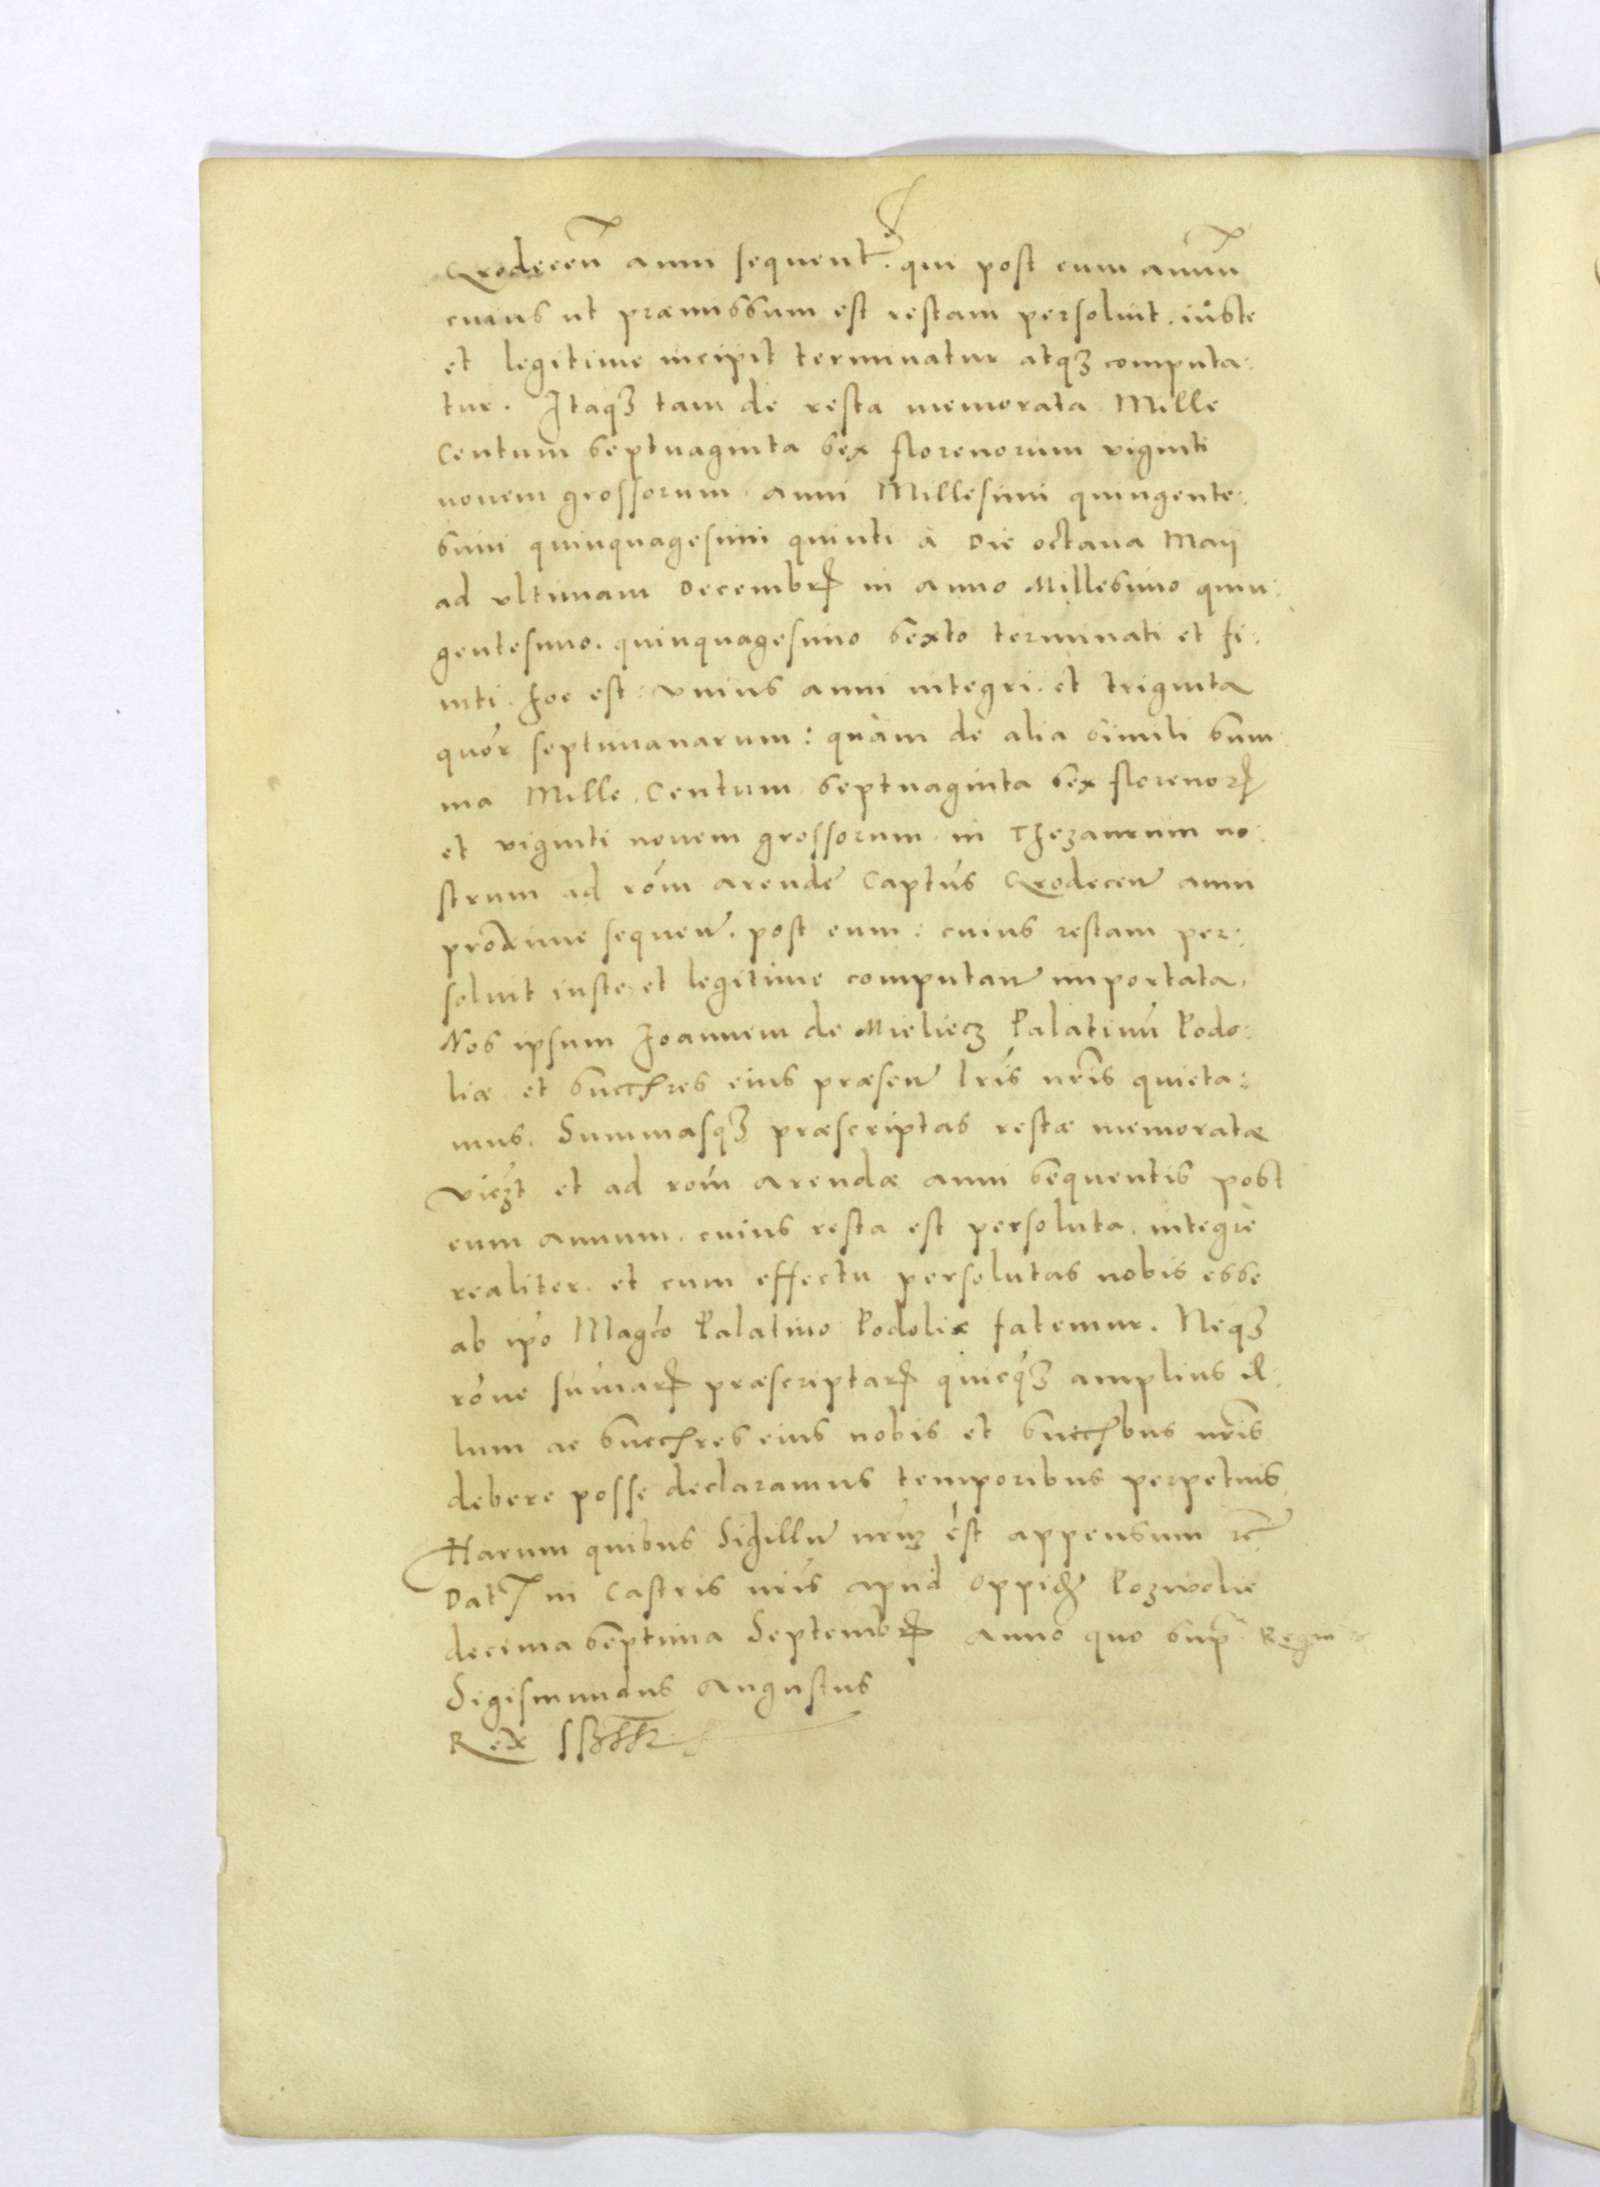 Grodecen̄ anni sequent̄. qui post eum annū
cuius ut præmissum est restam persoluit. iůste
et legitime incipit terminatur atqȝ computa:
tur. Itaqȝ tam de resta memorata Mille
Centum septuaginta sex florenorum viginti
nouem grossorum anni Millesimi quingente:
simi quinquagesimi quinti à Die octaua Maij
ad vltimam Decembrꝭ in anno Millesimo quin:
gentesimo. quinquagesimo sexto terminati et fi:
niti. hoc est: vnius anni integri. et triginta
quor septimanarum: quàm de alia simili Sum
ma Mille. Centum septuaginta sex florenorꝝ
et viginti nouem grossorum in Thezaurum no:
strum ad rōm arendę Captůs Grodecen̄ anni
proxime sequen̄. post eum: cuius restam per:
soluit iuste et legitime computan̄ importata.
Nos ipsum Joannem de Mieliecz Palatinū Podo:
liæ et Succres eius præsen̄ lrīs nrīs quieta:
mus. Summasqȝ præscriptas restæ memoratæ
vieȝt et ad rōm arendæ anni sequentis post
eum annum. cuius resta est persoluta. integrè
realiter. et cum effectu persolutas nobis esse
ab ip̄o Mag̃co Palatino Podoliæ fatemur. Neqȝ
rōne sūmarꝝ præscriptarꝝ quicqȝ amplius il:
lum ac Succres eius nobis et Succbus nrīs
debere posse declaramus temporibus perpetuis.
Harum quibus Sigillu̅ nrūm est appensum rc̄
Dat̄ in Castris nrīs apud oppid̄ Pozwolie
decima septima Septembrꝭ Anno quo sup̄ Regni
Sigismundus Augustus
Rex